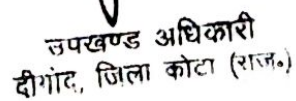 उपखण्ड अधिकारी
दीगोद, जिला कोटा (राज०)